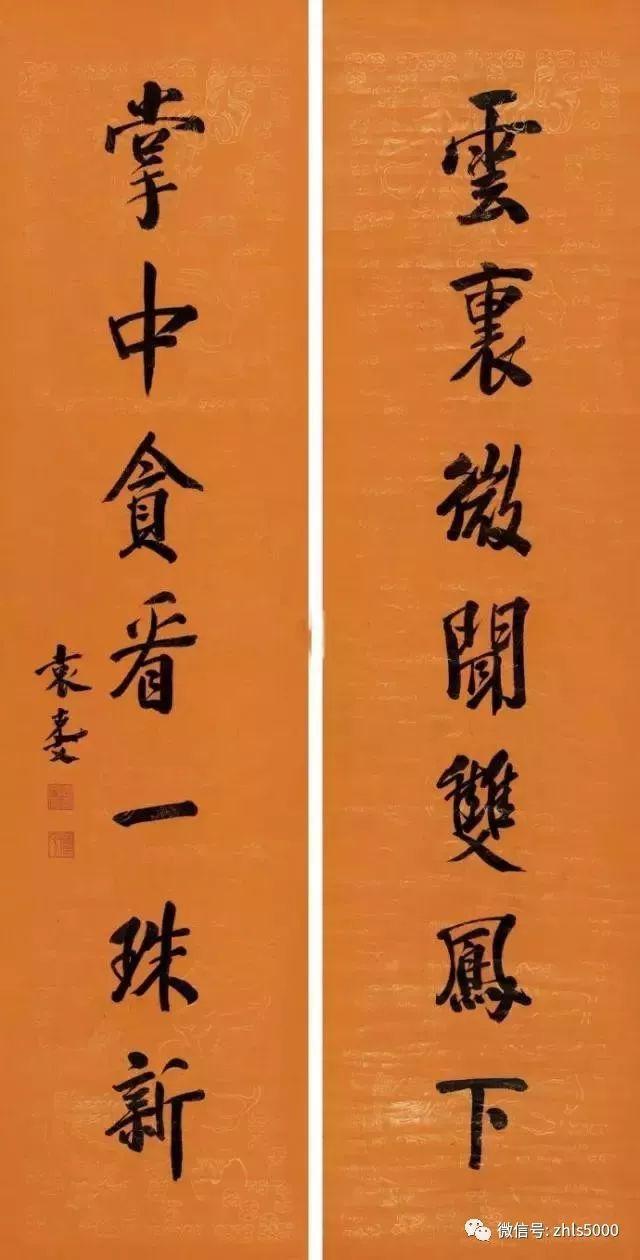 雲裏微聞雙鳳下
掌中貪看一珠新
袁克文
微信号: zhls5000